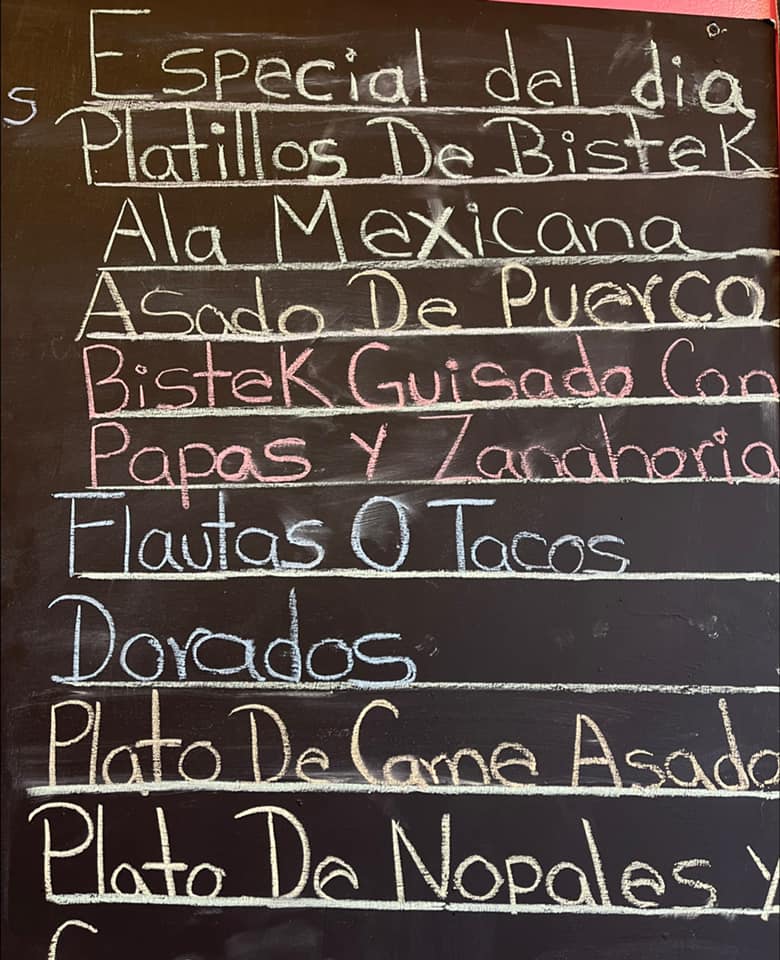 Especial del dia
s
Platillos De Bistek
Ala Mexicana
Asado De Puerco
Bistek Guisado Con
Papas y Zanahoria
Flautas O Tacos
Dorados
Plato De Carne Asada
Plato De Nopales y